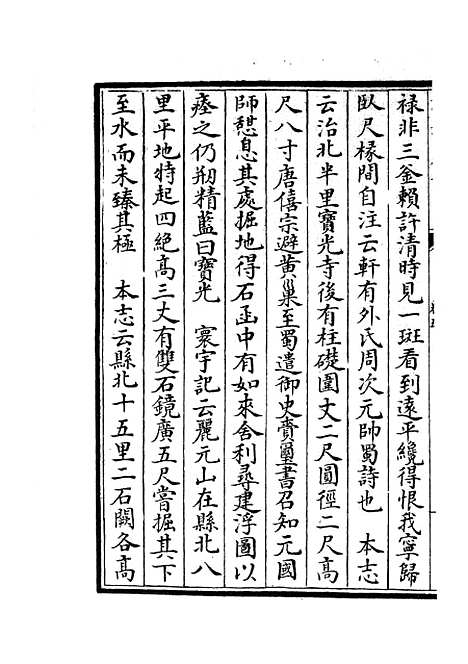 祿非三釡賴許清時見一斑看到遠平纔得恨我寧歸
臥尺椽間自注云軒有外氏周次元帥蜀詩也　本志
云治北半里寶光寺後有柱礎圍丈二尺圓徑二尺高
尺八寸唐僖宗避黃巢至蜀遣御史賫璽書召知元國
師憇息其處掘地得石函中有如來舍利尋建浮圖以
瘞之仍剏精藍曰寶光　寰宇記云麗元山在縣北八
里平地特起四絶高三丈有雙石鏡廣五尺嘗掘其下
至水而未臻其極　本志云縣北十五里二石闕各高